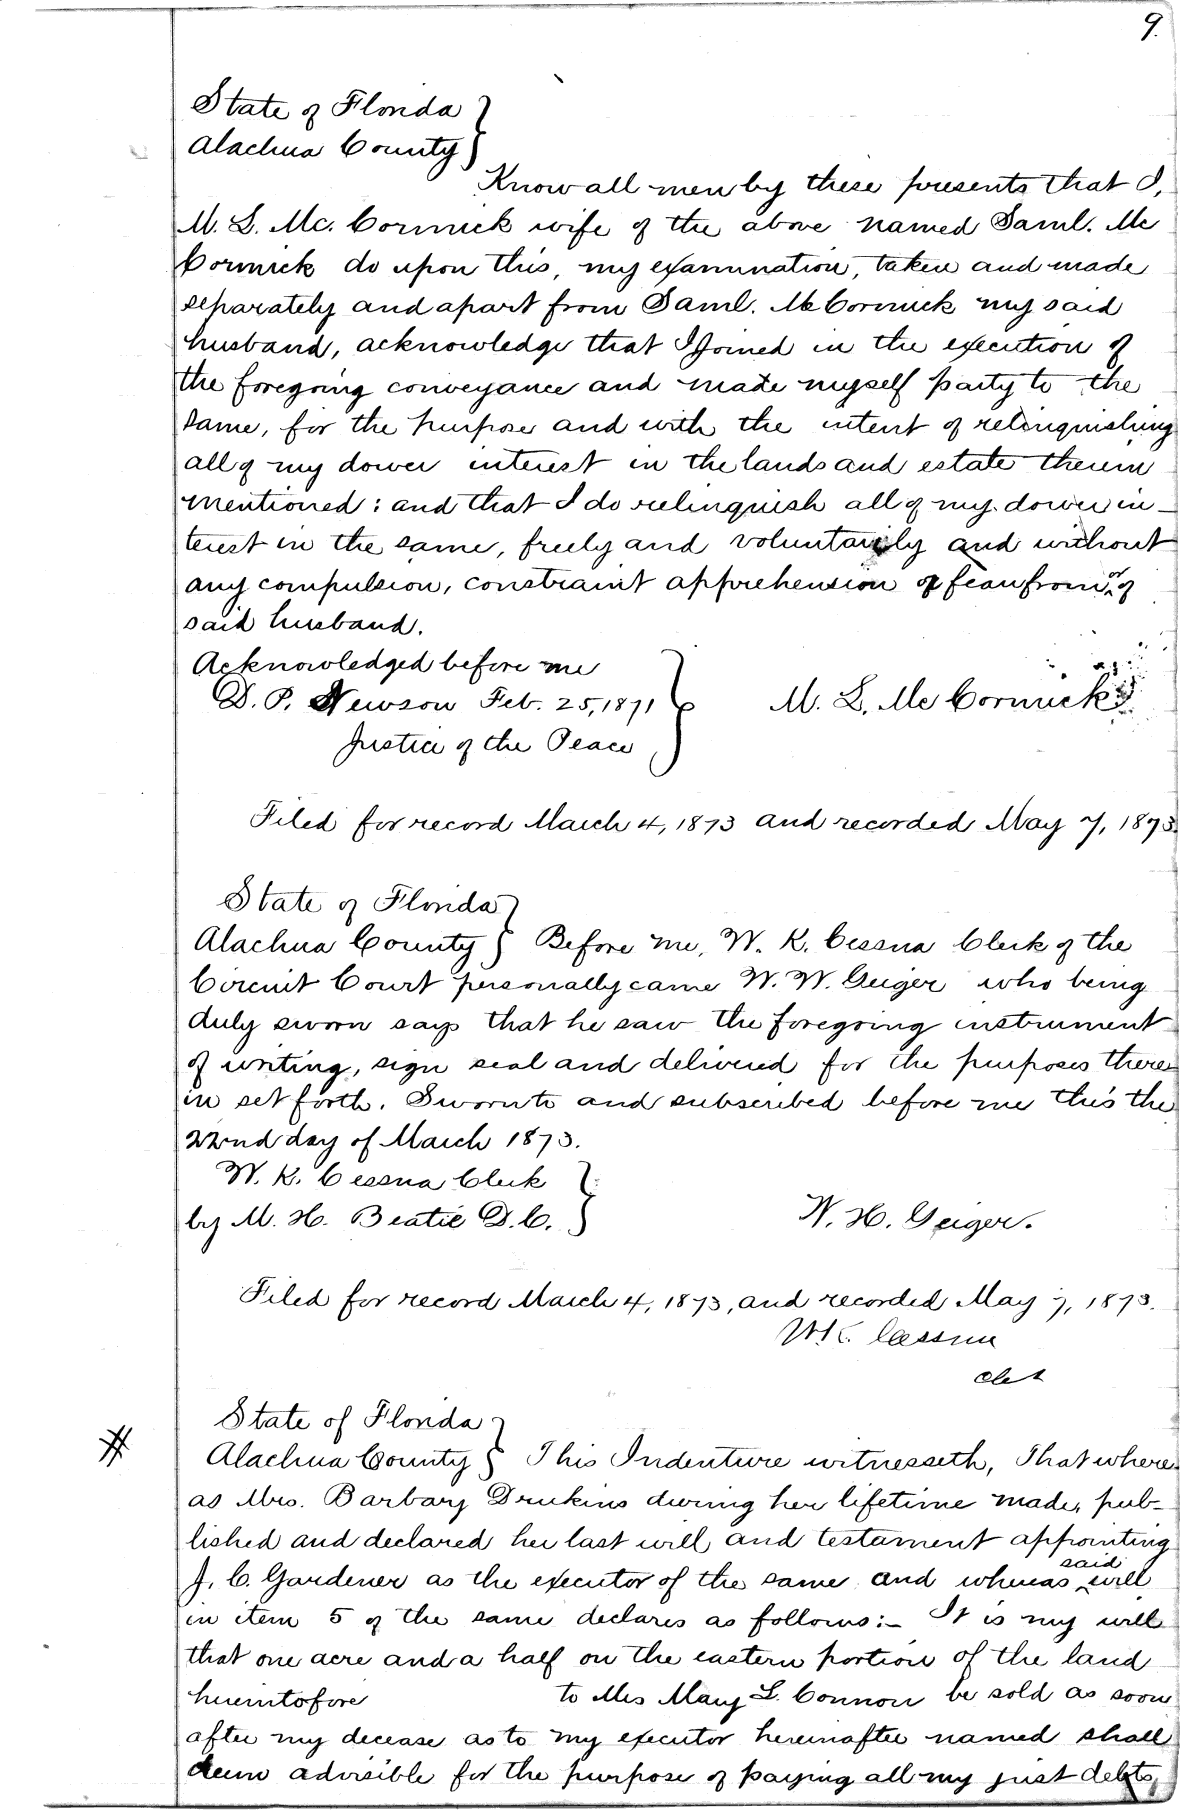 9.
State of Florida }
Alachua County }
Know all men by these presents that I,
M. L. Mc. Cormick wife of the above named Saml. Mc
Cormick do upon this, my examination, taken and made
separately and apart from Saml. McCormick my said
husband, acknowledge that I joined in the execution of
the foregoing conveyance and made myself party to the
same, for the purpose and with the intent of relinquishing
all of my dower interest in the lands and estate therein
mentioned: and that I do relinquish all of my dower in-
terest in the same, freely and voluntarily and without
any compulsion, constraint apprehension of fear from or of
said husband.
Acknowledged before me
D. P. Newson Feb. 25, 1871 } M. L. Mc Cormick
Justice of the Peace
Filed for record March 4, 1873 and recorded May 7, 1873.
State of Florida }
Alachua County } Before me, W. K. Cessna Clerk of the
Circuit Court personally came W. W. Geiger who being
duly sworn says that he saw the foregoing instrument
of writing, sign seal and delivered for the purposes there
in set forth. Sworn to and subscribed before me this the
22nd day of March 1873.
W. K. Cessna Clerk }
by M. H. Beatie D.C. } W. H. Geiger.
Filed for record March 4, 1873, and recorded May 7, 1873.
W.K. Cessna
Clk
State of Florida }
# Alachua County } This Indenture witnesseth, That where
as Mrs. Barbary Drukins during her lifetime made, pub-
lished and declared her last will and testament appointing
J. C. Gardener as the executor of the same and whereas said will
in item 5 of the same declares as follows:- It is my will
that one acre and a half on the eastern portion of the land
heretofore to Mrs Mary L. Connor be sold as soon
after my decease as to my executor hereinafter named shall
deem advisible for the purpose of paying all my just debts,